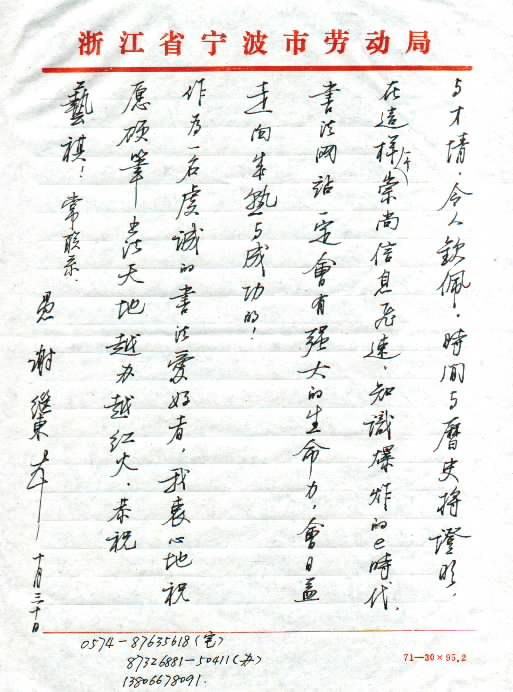 浙江省宁波市劳动局
与才情，令人欽佩！時间与曆史將證明，
在這样一个崇尚信息飞速、知識爆炸的e時代，
書法網站一定會有强大的生命力，會日益
走向成熟与成功的！
作为一名虔诚的書法爱好者，我衷心地祝
愿硕筆书法天地越办越红火。恭祝
藝祺！常联系．
愚 谢继東
十月三十日
0574-87635618(宅)
87326881-50411(办)
13806678091.
71—30×95.2